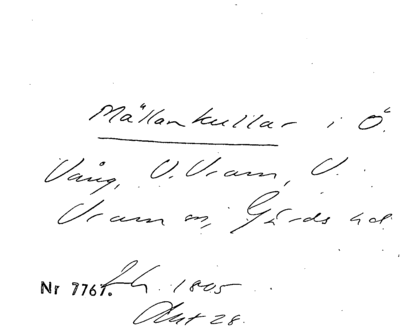 Mällankullar i Ö.
Vång, V. Vram, V.
Vram sn, Gärds hd
Nr 7761. Lh. 1805
Akt 28.